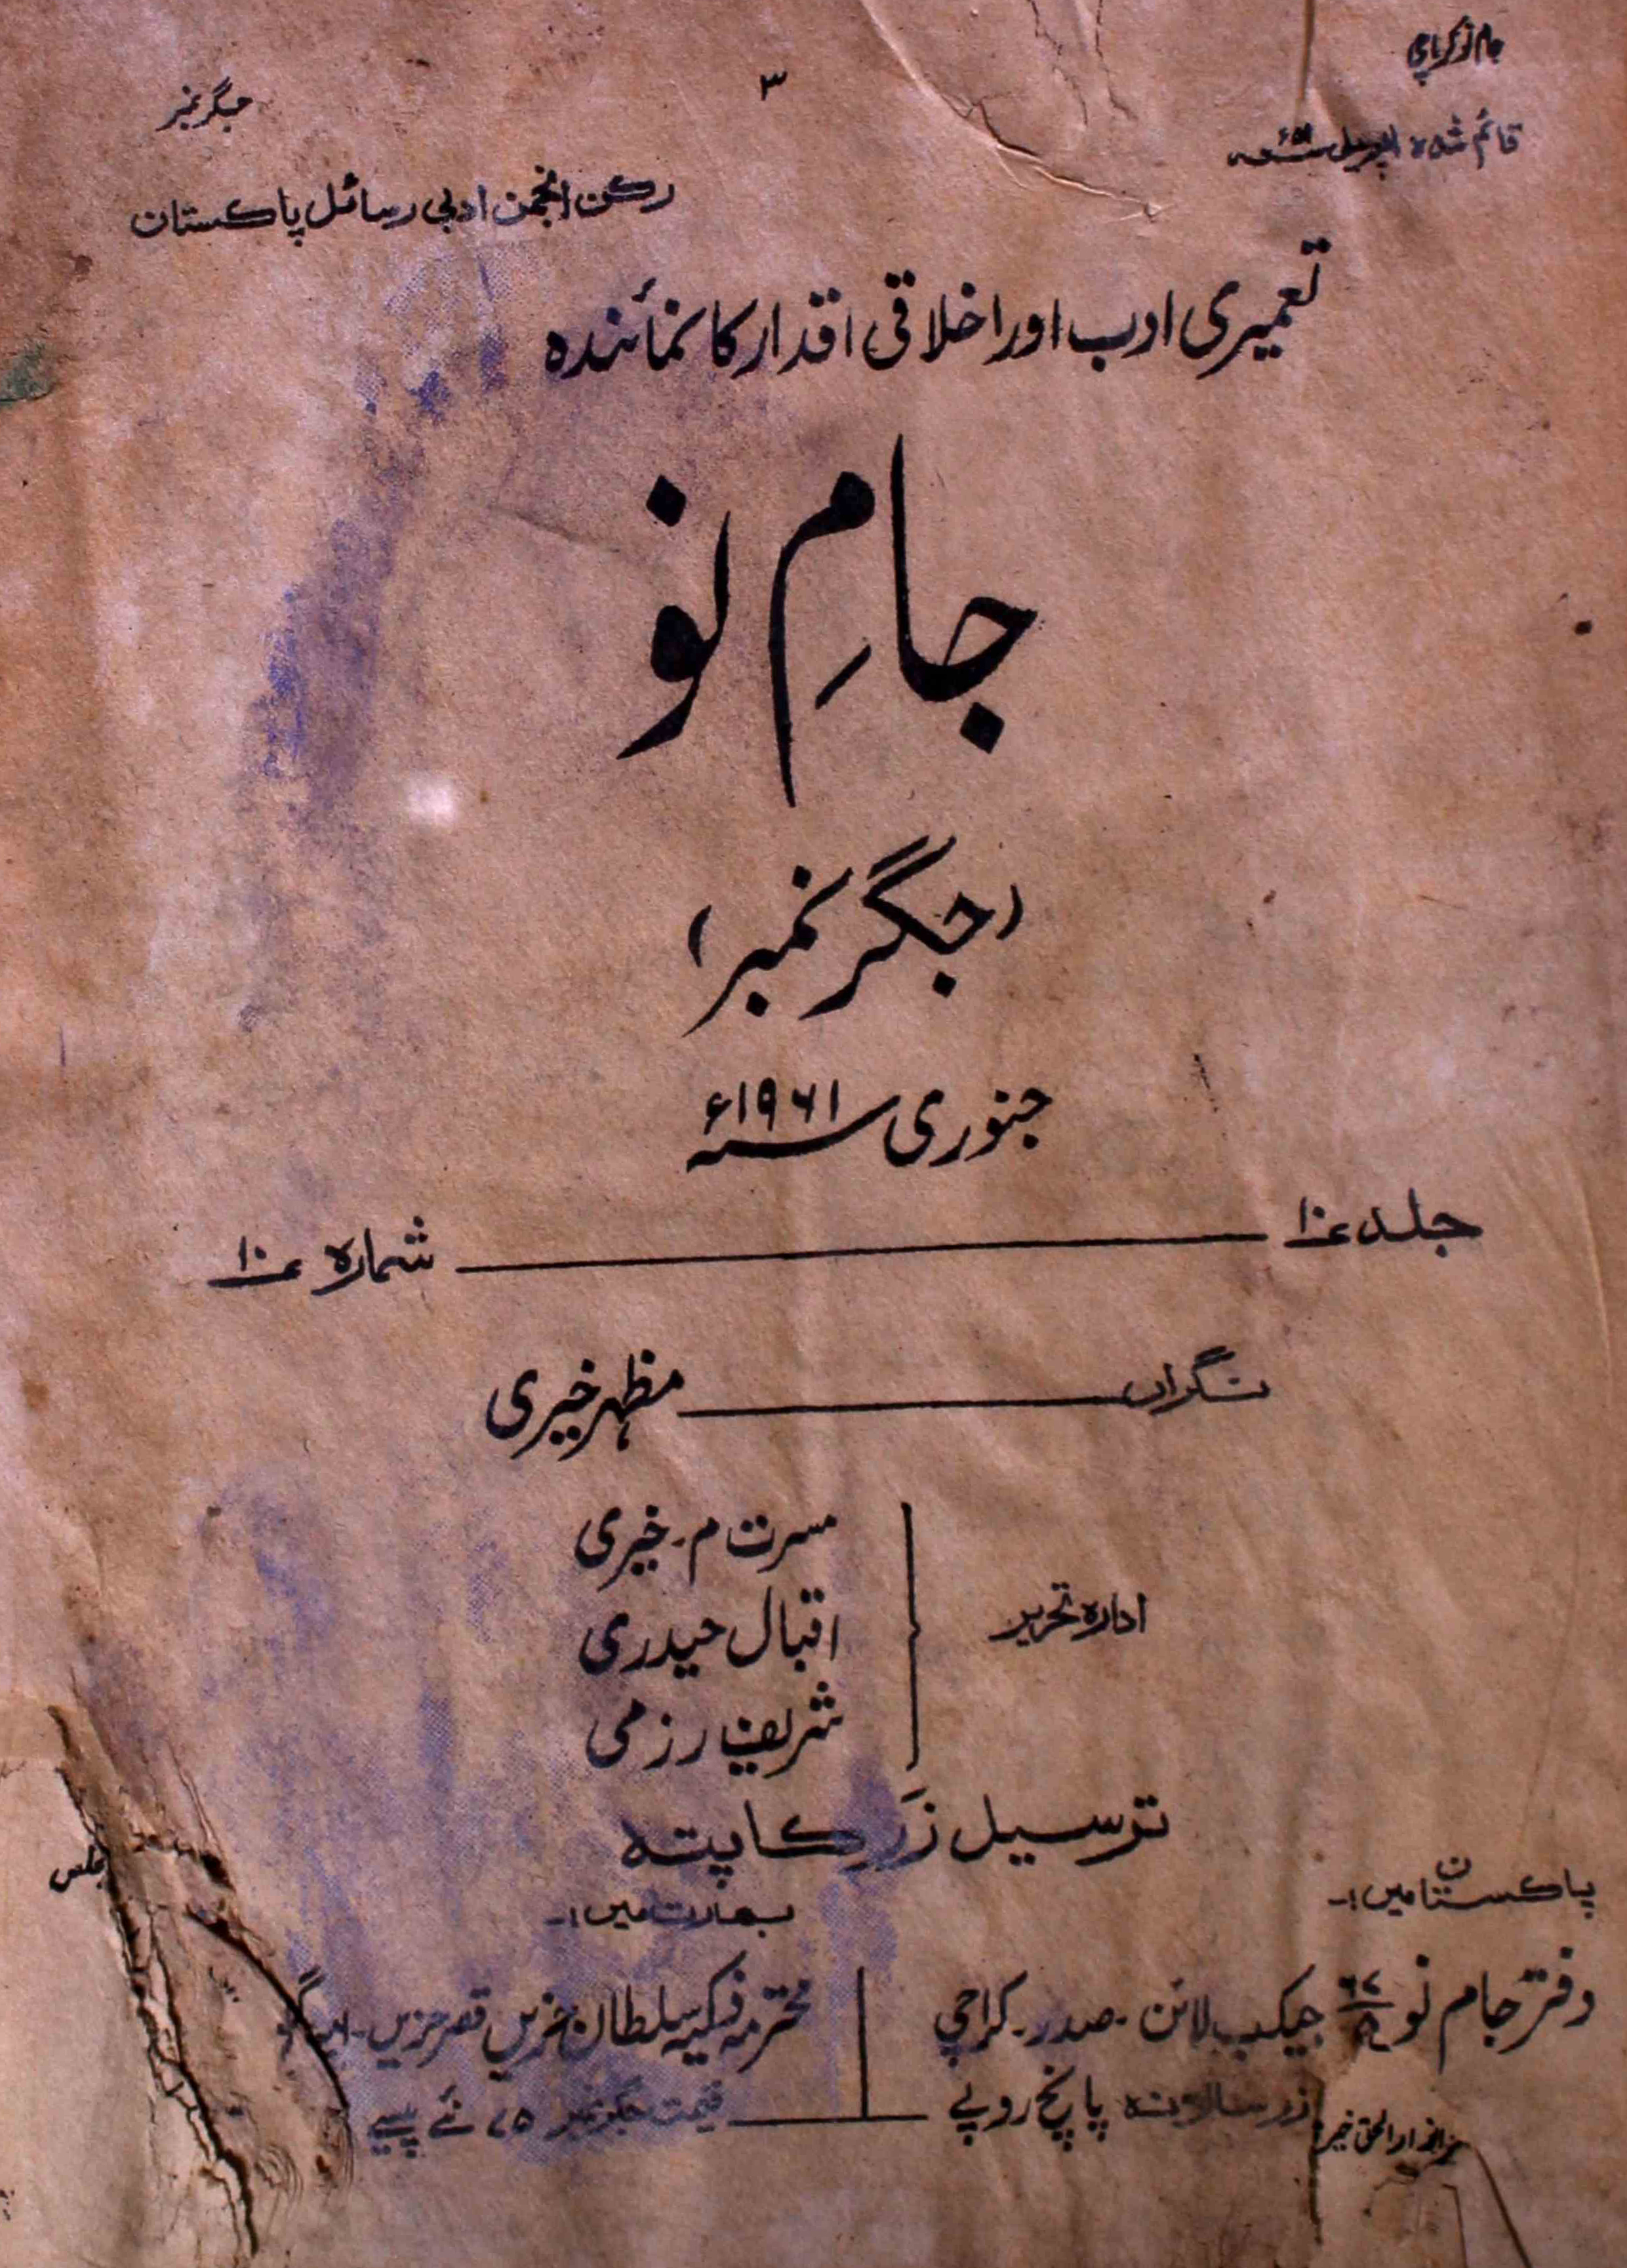 جام نو کراچی
۳
جگر نمبر
قائم شدہ اپریل
رکن انجمن ادبی رسائل پاکستان
تعمیری ادب اور اخلاقی اقدار کا نمائندہ
جامِ نو
(جگر نمبر)
جنوری سنہ ۱۹۶۱ء
جلد ۱۰ شمارہ ۱۰
نگراں مظہر خیری
ادارہ تحریر
مسرت م۔ خیری
اقبال حیدری
شریف رزمی
ترسیل زَر کا پتہ
پاکستان میں :-
دفتر جام نو جیکب لائن۔ صدر۔ کراچی
زر سالانہ پانچ روپے
بھارت میں :-
محترمہ سلطان قصر حزیں۔
قیمت جگر نمبر ۷۵ نئے پیسے